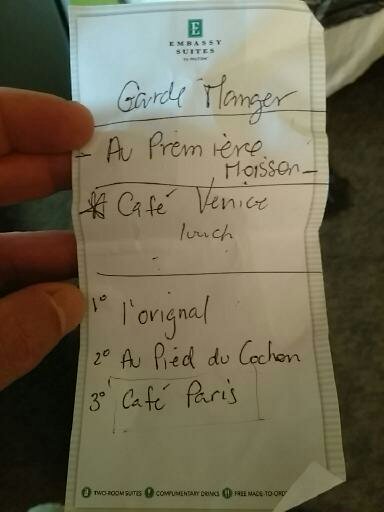 E
EMBASSY
SUITES
by HILTON™
Garde Manger
- Au Première
Moisson -
* Café Venice
lunch
1° l'orignal
2° Au Pied du Cochon
3° Café Paris
TWO-ROOM SUITES COMPLIMENTARY DRINKS FREE MADE-TO-ORD